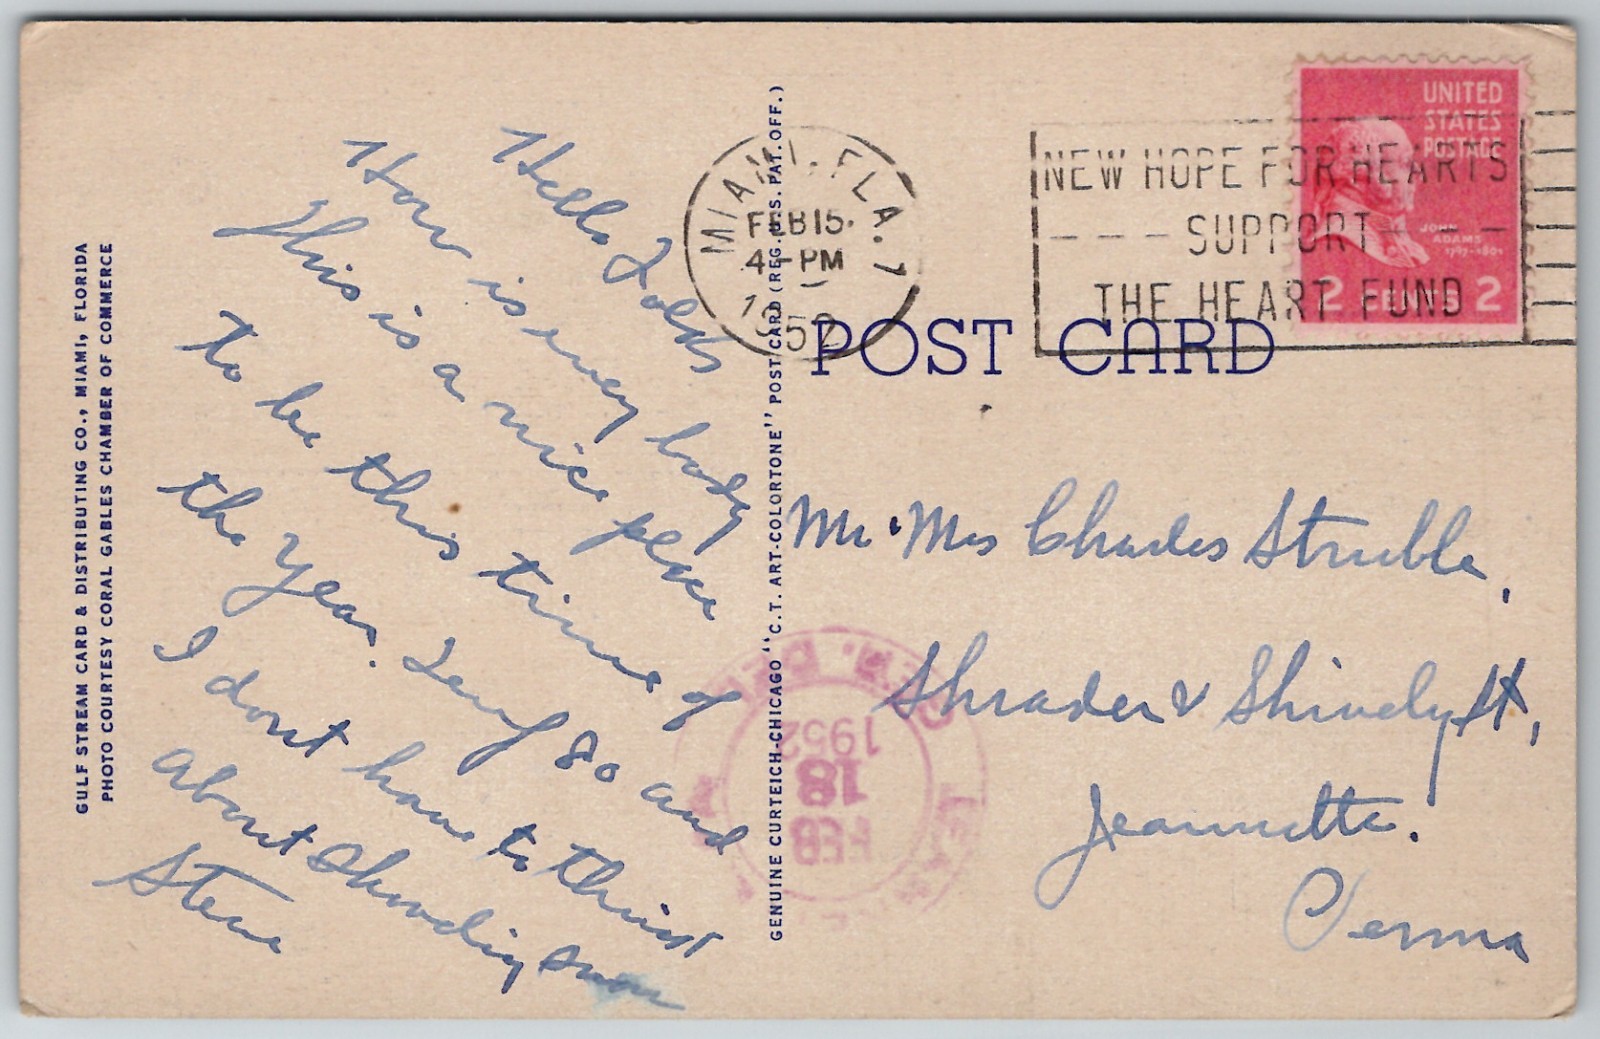 Hello Folks
How is every body
This is a nice place
to be this time of
the Year. Temp 80 and
I dont have to think
about Shoveling snow
Steve
GULF STREAM CARD & DISTRIBUTING CO., MIAMI, FLORIDA
PHOTO COURTESY CORAL GABLES CHAMBER OF COMMERCE
GENUINE CURTEICH-CHICAGO "C.T. ART-COLORTONE" POST CARD (REG. U.S. PAT. OFF.)
MIAMI, FLA. 7
FEB 15
4-PM
1952
NEW HOPE FOR HEARTS
SUPPORT
THE HEART FUND
UNITED
STATES
POSTAGE
JOHN
ADAMS
1797-1801
2 CENTS 2
POST CARD
Mr. Mrs Charles Struble,
Shrader & Shively St,
Jeannette.
Penna
GEN. DEL.
FEB
18
1952